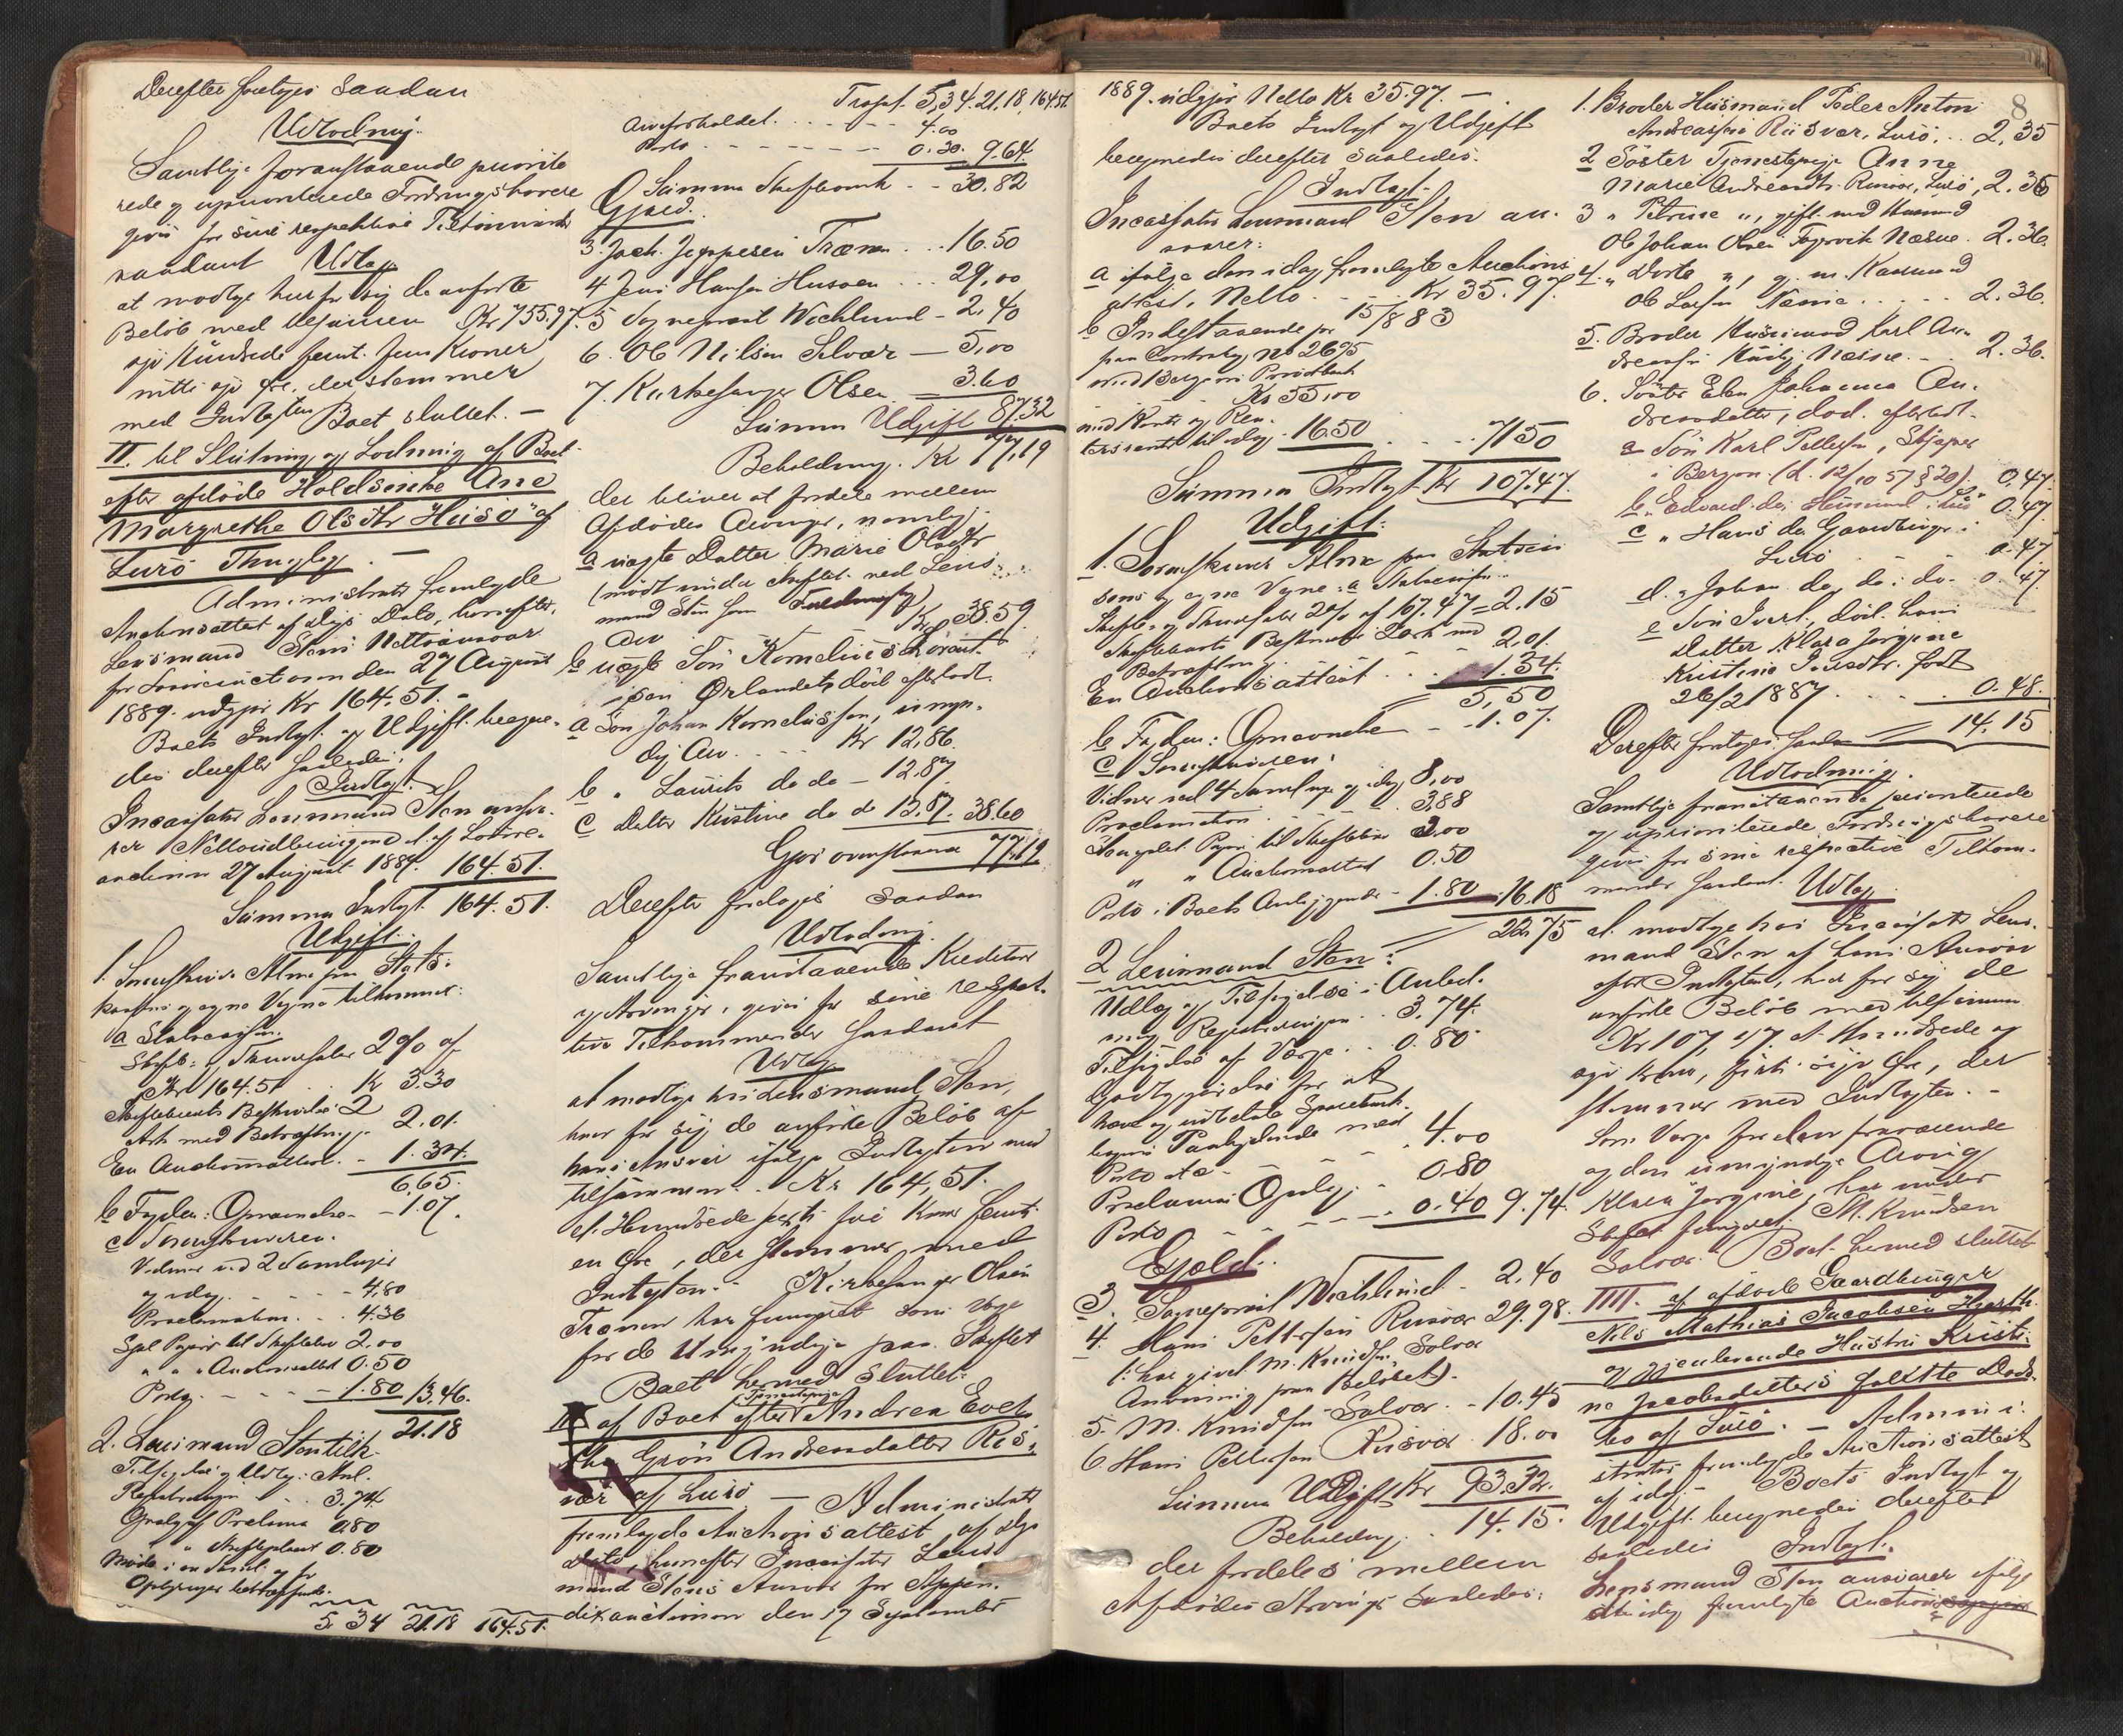 Derefter foretoges saadan
Udlodning.
Samtlige foranstaaende priorite
rede og uprioriterede Fordringshavere
gives for sine respektive Tilkommender
saadant Udlæg
at modtage hver for sig de anførte
Beløb med tilsammen Kr 755.97.
syv Hundrede femti fem Kroner
nitti syv Øre, der stemmer
med Indtægten Boet sluttet. —
II. til Slutning og Lodning af Boet
efter afdøde Holdsinke Ane
Margrethe Olsdtr Husö af
Lurö Thinglag. —
Administrator fremlagde
Auctionsattest af Dags Dato, hvorefter
Lensmand Stens Nettoansvar
for Løsøreauctionen den 27 August
1889. udgjør Kr 164.51. —
Boets Indtægt og Udgift beregne-
des derefter saaledes:
Indtægt.
Incassator Lensmand Sten ansva-
rer Nettoudbringende af Løsøre-
auctionen 27 August 1889. 164.51.
Summa Indtægt. 164.51.
Udgift.
1. Sorenskriver Alme paa Stats-
kassens og egne Vegne tilkommer:
a Statscassen.
Skifte- og Thinghuse 2% af
Kr 164.51 . . Kr 3.30
Skiftebrevets Beskrivelse 2
Ark med Bekræftning. 2.01.
En Auctionsattest. - 1.34.
6.65.
b Fogden: Opnævnelse - 1.07.
c Sorenskriveren.
Vidner ved 2 Samlinger
og idag. - - - - 4.80
Proclamation. . . 4.36
Stpl Papir til Skiftebr. 2.00
" " " Auctionsattest 0.50
Porto. - - - - 1.80 13.46.
21.18
2. Lensmand Sten tilk.
Tilsigelse og Udlæg i Anl.
Registreringen . . 3.74
Opslag af Proclama 0.80
" " Skifteplacat 0.80
Møde i en Saml. og for
Oplysninger
5.34 21.18 164.51.
Transp. 5.34. 21.18, 164.51.
Arveforholdet. . . - - - 4.00
Porto - - - - - - - 0.30. 9.64.
Summa Skifteomk - - 30.82
Gjæld.
3. Joch. Jeppesen Trænen . . 16.50
4 Jens Hansen Husøen . . . 29.00
5 Sogneprest Wichlund - 2.40
6. Ole Nilsen Selvær — 5.00
7. Kirkesanger Olsen — 3.60
Summa Udgift 87.32
Beholdning. Kr 77.19
der bliver at fordele mellem
Afdødes Arvinger, nemlig:
a ægte Datter Marie Olsdtr
(mødt under Skiftet ved Lens-
mand Sten som Fuldmægtig)
Arv Kr 38.59.
b ægte Søn Kornelius Lorent-
sen Ørlandet, død efterladt.
a Søn Johan Korneliussen, umyn-
dig Arv. . . - - Kr 12.86.
b " Laurits do do — 12.87
c Datter Kristine do do 12.87. 38.60
Gjør ovenstaaende 77.19
Derefter foretoges saadan
Udlodning.
Samtlige foranstaaende Kreditorer
og Arvinger, gives for sine respek-
tive Tilkommender saadant
Udlæg
at modtage hos Lensmand Sten,
hver for sig de anførte Beløb af
hans Ansvar ifølge Indtægten med
tilsammen. . Kr 164,51.
et Hundrede sexti fire Kroner femti
en Øre, der stemmer med
Indtægten. - Kirkesanger Olsen
Trænen har fungeret som Værge
for de Umyndige paa Skiftet
Boet hermed sluttet.
III af Boet efter Tjenestepige Andrea Evert
ha Grøn Andreasdatter Riis-
vær af Lurö — Administrator
fremlagde Auctionsattest af Dags
Dato, hvorefter Incassator Lens-
mand Stens Ansvar for Appen-
dixauctionen den 17 September
8
1889. udgjør Netto Kr 35.97. —
Boets Indtægt og Udgift
beregnedes derefter saaledes.
Indtægt.
Incassator Lensmand Sten an-
svarer:
a ifølge den idag fremlagte Auctions
attest. Netto. . - Kr 35.97.
b Indestaaende pr 15/8 83
paa Contrabog No 2695
med Bergens Privatbank
Kr 55,00
med Rente og Ren-
tersrente til idag. 16.50 . . - 71.50
Summa Indtægt Kr 107.47.
Udgift:
1. Sorenskriver Alme paa Statscas-
sens og egne Vegne: a Statscassen.
Skifte- og Thinghuse 2% af 107.47 = 2.15
Skiftebrevets Beskrivelse 2 Ark med
Bekræftning. - - 2.01.
En Auctionsattest . . . 1.34.
5,50
b Fogden: Opnævnelse - - 1.07.
c Sorenskriveren:
Vidner ved 4 Samlinger og idag 8.00
Proclamation . . . . . 3.88
Stemplet Papir til Skiftebrev 2.00
" " Auctionsattest 0.50
Porto i Boets Anliggende - 1.80 16.18
22.75
2 Lensmand Sten:
Udlæg og Tilsigelse i Anled-
ning Registreringen . . 3.74.
Tilsigelse af Værge. . . 0.80
Godtgjørelse for at
have og indbetale Sparebank-
bogens Paalydende med
Porto etc - - - - . 4.00
Proclamas Opslag. - 0.80
Porto - - - - - 0.40 9.74.
Gjæld.
3. Sogneprest Wichlund - 2.40
4. Hans Pettersen Riisvær 29.98.
(har givet M. Knudsen, Solvær
Anvisning paa Beløbet).
5. M. Knudsen Solvær. - 10.45
6. Hans Pettersen Riisvær 18.00
Summa Udgift Kr 93.32.
Beholdning. . 14.15.
der fordeles mellem
Afdødes Arvinger saaledes:
1. Broder Husmand Peder Anton
Andreassen Riisvær, Lurö, . . 2.35
2 Søster Tjenestepige Anne
Marie Andreasdtr. Riisvær, Lurö, 2.36
3 " Petrine ", gift med Husmand
Ole Johan Olsen Nesne. 2.36.
4. " Dorte ", g. m. Husmand
Ole Larsen Nesne . . . . . 2.36.
5. Broder Husmand Karl An-
dreassen Nesne. - . 2.36.
6. Søster Elen Johanna An-
dreasdatter, død. efterladt-
a Søn Karl Pettersen, Skipper
i Bergen. (d. 12/10 57 § 20). 0.47.
b " Edvard do, Husmand, Lurö 0.47.
c " Hans do Gaardbruger i
Lurö - - - 0.47
d. " Johan do, do i do - 0.47.
e Søn Ivert, død. hans
Datter Klara Jorgine
Kristine Ivertsdtr. født
26/2 1887. . . . . . 0.48.
14.15
Derefter foretoges saadan
Udlodning.
Samtlige foranstaaende prioriterede
og uprioriterede Fordringshavere
gives for sine respective Tilkom-
mender saadant Udlæg
at modtage hos Incassator Lens-
mand Sten af hans Ansvar
efter Indtægten, hver for sig de
anførte Beløb med tilsammen
Kr 107,47. et Hundrede og
syv Kroner, firti syv Øre, der
stemmer med Indtægten. -
Som Værge for den fraværende
og den umyndige Arving
Klara Jorgine, har under
Skiftet fungeret M. Knudsen
Solvær. Boet hermed sluttet
IIII. af afdøde Gaardbruger
Nils Mathias Jacobsen
og gjenlevende Hustru Kristi-
ne Jacobsdatters fallitte Døds-
bo af Lurö. - Admini-
strator fremlagde Auctionsattest
af idag. - Boets Indtægt og
Udgift beregnedes derefter
saaledes Indtægt.
Lensmand Sten ansvarer ifølge
den idag fremlagte Auctions